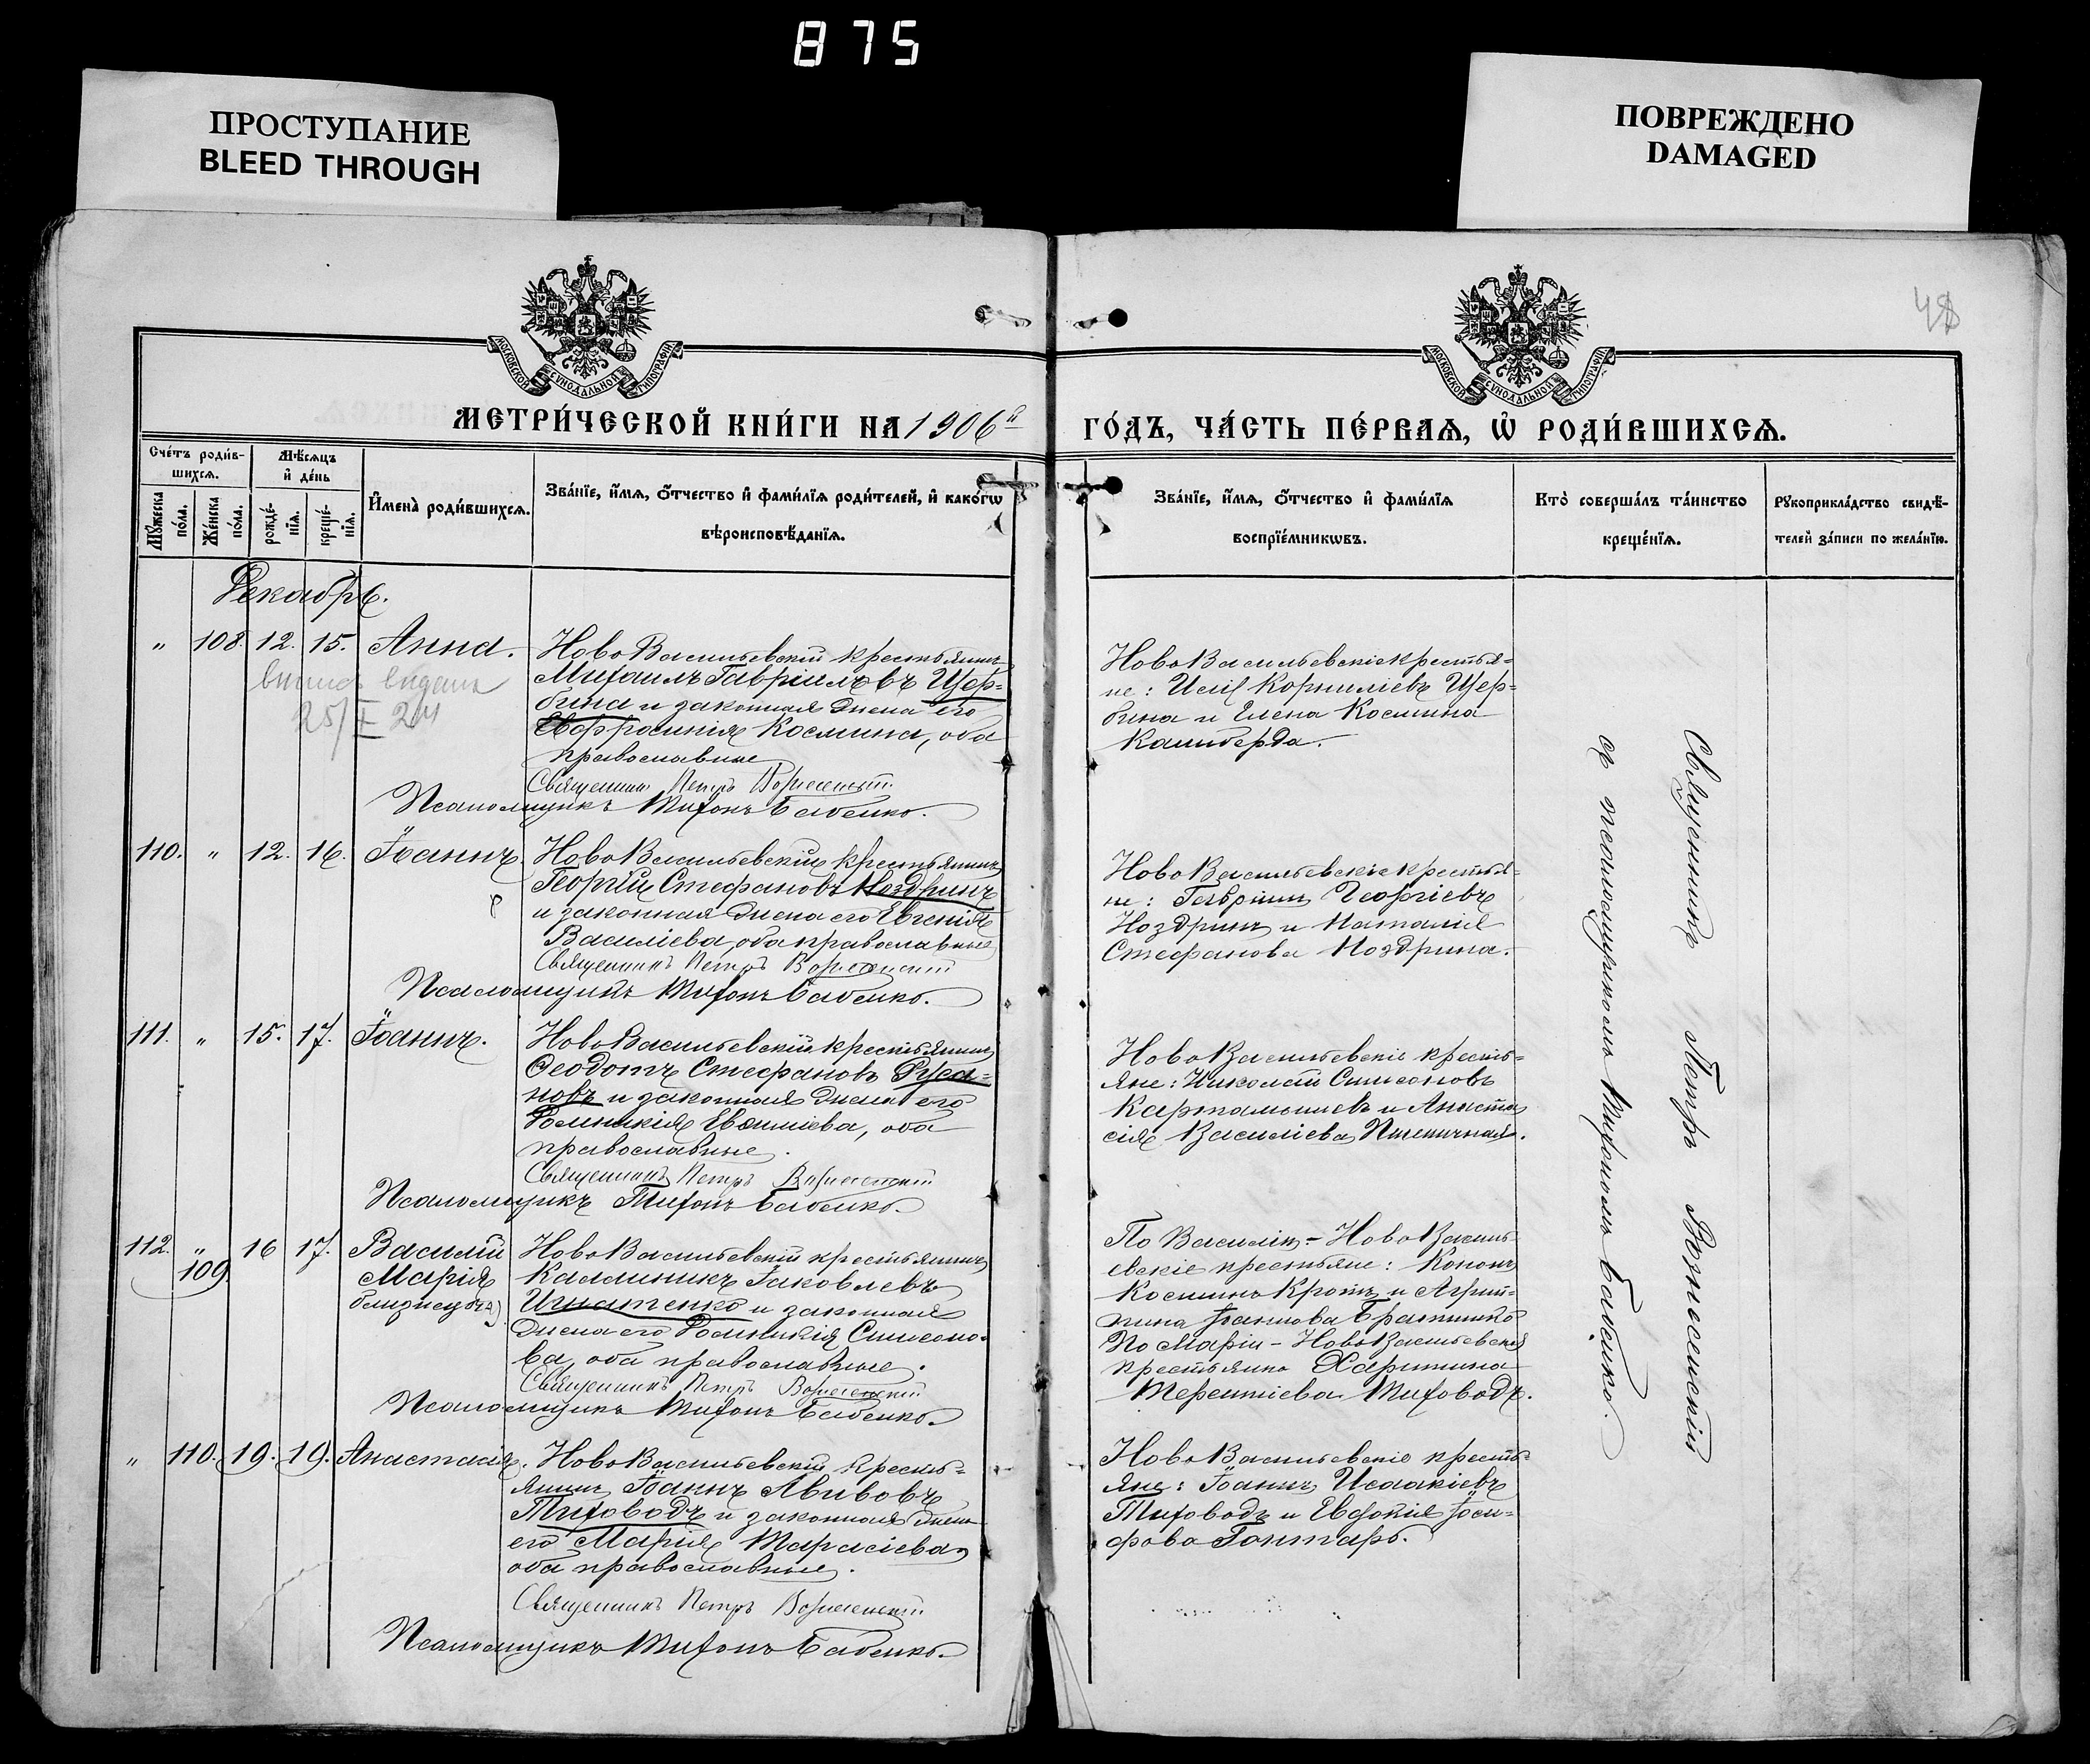 875
ПРОСТУПАНИЕ
BLEED THROUGH
ПОВРЕЖДЕНО
DAMAGED
МОСКОВСКОЙ СѴНОДАЛЬНОЙ ТИПОГРАФІИ
МОСКОВСКОЙ СѴНОДАЛЬНОЙ ТИПОГРАФІИ
МЕТРИ́ЧЕСКОЙ КНИ́ГИ НА 1906й
ГО́ДЪ, ЧА́СТЬ ПЕ́РВАЯ, Ѡ РОДИ́ВШИХСЯ.
Сче́тъ роди́в-
шихся.
Мѣ́сяцъ
и де́нь
Мꙋжеска
по́ла.
Же́нска
по́ла.
рожде́-
нїя.
креще́-
нїя.
И҆мена̀ роди́вшихся.
Зва́нїе, и҆́мя, ѻ҆́тчество и҆ фами́лїя роди́телей, и҆ како́гѡ
вѣроисповѣ́данїя.
Зва́нїе, и҆́мя, ѻ҆́тчество и҆ фами́лїя
воспрїе́мникѡвъ.
Кто̀ соверша́лъ та́инство
креще́нїя.
Рꙋкоприкла́дство свидѣ́-
телей за́писи по жела́нїю.
Декабрь.
" 108. 12. 15. Анна.
25/I 24
НовоВасильевскій крестьянинъ
Михаилъ Гавріиловъ Щер-
бина и законная жена его
Евфросинія Космина, оба
православные
Священникъ Петръ Вознесенскій
Псаломщикъ Тихонъ Бабенко.
НовоВасильевскіе крестья-
не: Исаія Корниліевъ Щер-
бина и Елена Космина
Калиберда.
110. " 12. 16. Іоаннъ.
НовоВасильевскій крестьянинъ
Георгій Стефановъ Ноздринъ
и законная жена его Евгенія
Василіева, оба православные
Священникъ Петръ Вознесенскій
Псаломщикъ Тихонъ Бабенко.
НовоВасильевскіе крестья-
не: Гавріилъ Георгіевъ
Ноздринъ и Наталія
Стефанова Ноздрина.
111. " 15. 17. Іоаннъ.
НовоВасильевскій крестьянинъ
Ѳеодотъ Стефановъ Руса-
новъ и законная жена его
Домникія, оба
православные.
Священникъ Петръ Вознесенскій
Псаломщикъ Тихонъ Бабенко.
НовоВасильевскіе кресть-
яне: Николай Симеоновъ
Картамышевъ и Анаста-
сія Василіева Пшеничная.
112. " 16 17. Василій
109. Марія
близнецы
НовоВасильевскій крестьянинъ
Каллиникъ Іаковлевъ
Игнатенко и законная
жена его Домникія Симеоно-
ва, оба православные.
Священникъ Петръ Вознесенскій
Псаломщикъ Тихонъ Бабенко.
По Василію - НовоВасиль-
евскіе крестьяне: Кононъ
Косминъ Кротъ и Агрип-
пина Іоаннова
По Маріи - НовоВасильевская
крестьянка Харитина
Терентіева Тиховодъ.
" 110. 19. 19. Анастасія.
НовоВасильевскій кресть-
янинъ Іоаннъ Авивовъ
Тиховодъ и законная жена
его Марія Тарасіева,
оба православные.
Священникъ Петръ Вознесенскій
Псаломщикъ Тихонъ Бабенко.
НовоВасильевскіе кресть-
яне: Іоаннъ Исаакіевъ
Тиховодъ и Евфимія Іоси-
фова Гонтарь.
Священникъ Петръ Вознесенскій
съ псаломщикомъ Тихономъ Бабенко.